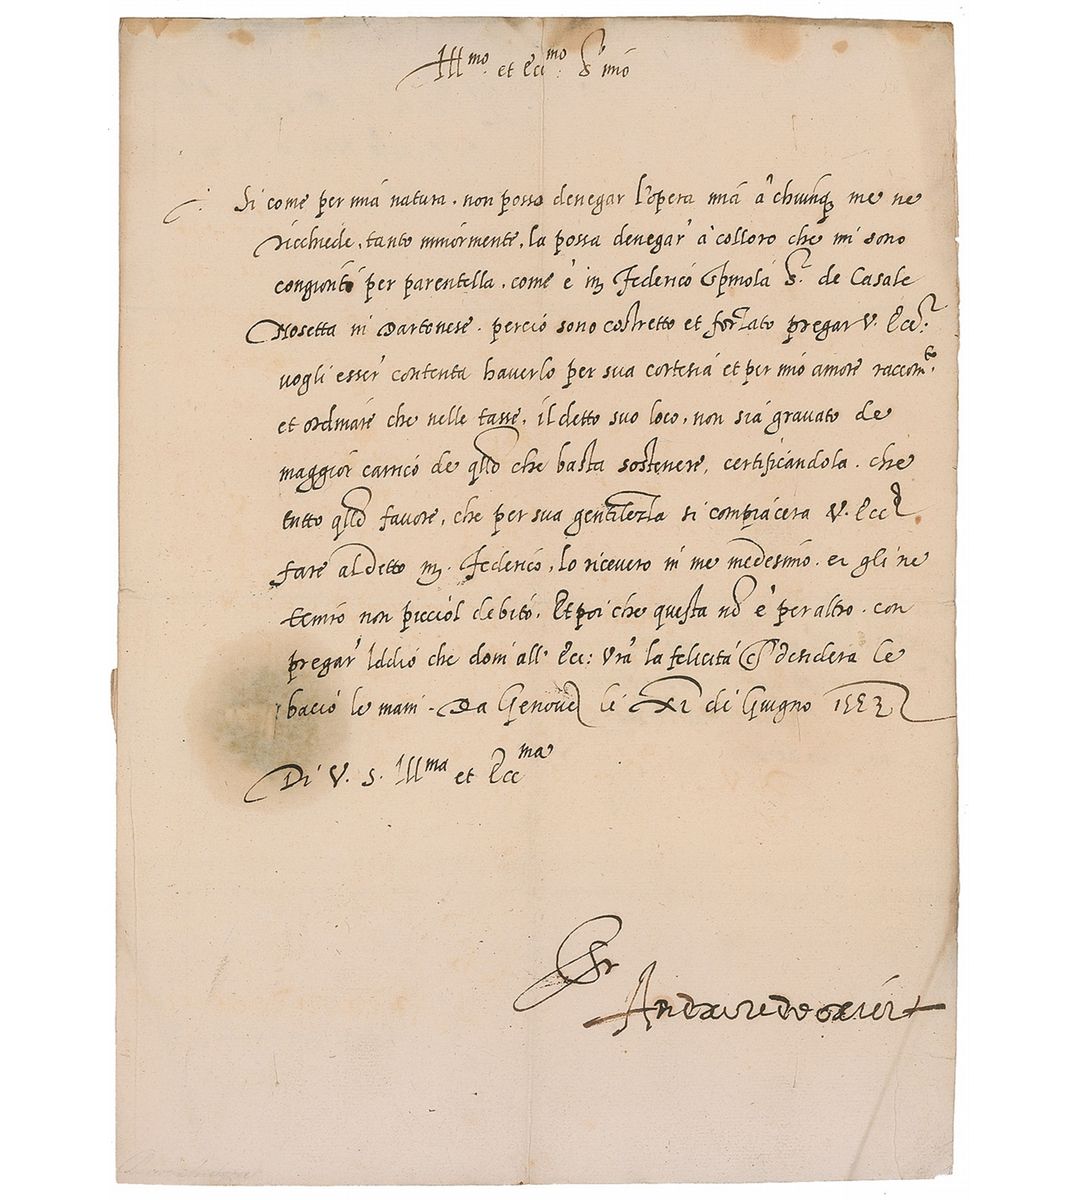 Ill^mo et Ecc^mo S^r mio
Si come per mia natura, non posso denegar l'opera mia à chiunq; me ne
ricchiede, tanto minormente, la possa denegar' à colloro che mi sono
congionti per parentella, come è m. Federico Spinola S.^r de Casale
Nosetta in Dartonese. perciò sono costretto et forzato pregar V. Ecc.^a
vogli esser' contenta haverlo per sua cortesia et per mio amore raccom.^to
et ordinare che nelle tasse, il detto suo loco, non sia gravato de
maggior carrico de qllo che basta sostenere, certificandola. che
tutto qllo favore, che per sua gentilezza si compiacera V. Ecc^a
fare al detto m. Federico, lo ricevero in me medesimo. et gli ne
temiro non picciol debito. Et poi che questa nō è per altro. con
pregar' Iddio che doni all' Ecc: Vrā la felicità desidera le
bacio le mani. Da Genova li XI di Giugno 1553
Di V. S. Ill^ma et Ecc^ma
Sr